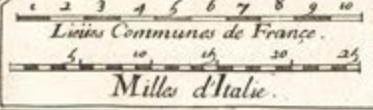 1 2 3 4 5 6 7 8 9 10
Lieües Communes de France.
5 10 15 20 25
Milles d'Italie.